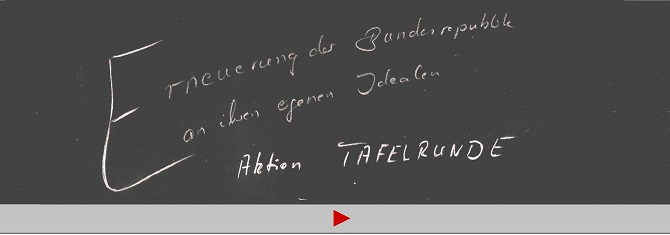 Erneuerung der Bundesrepublik
an ihren egenen Idealen
Aktion TAFELRUNDE